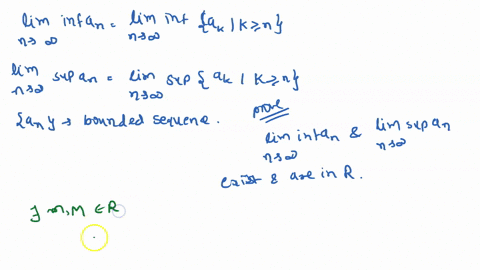 lim inf aₙ = lim inf {aₖ | k ≥ n}
n→∞ n→∞
lim sup aₙ = lim sup {aₖ | k ≥ n}
n→∞ n→∞
{aₙ} → bounded sequence.
prove
lim inf aₙ & lim sup aₙ
n→∞ n→∞
exist & are in R.
∃ m, M ∈ R